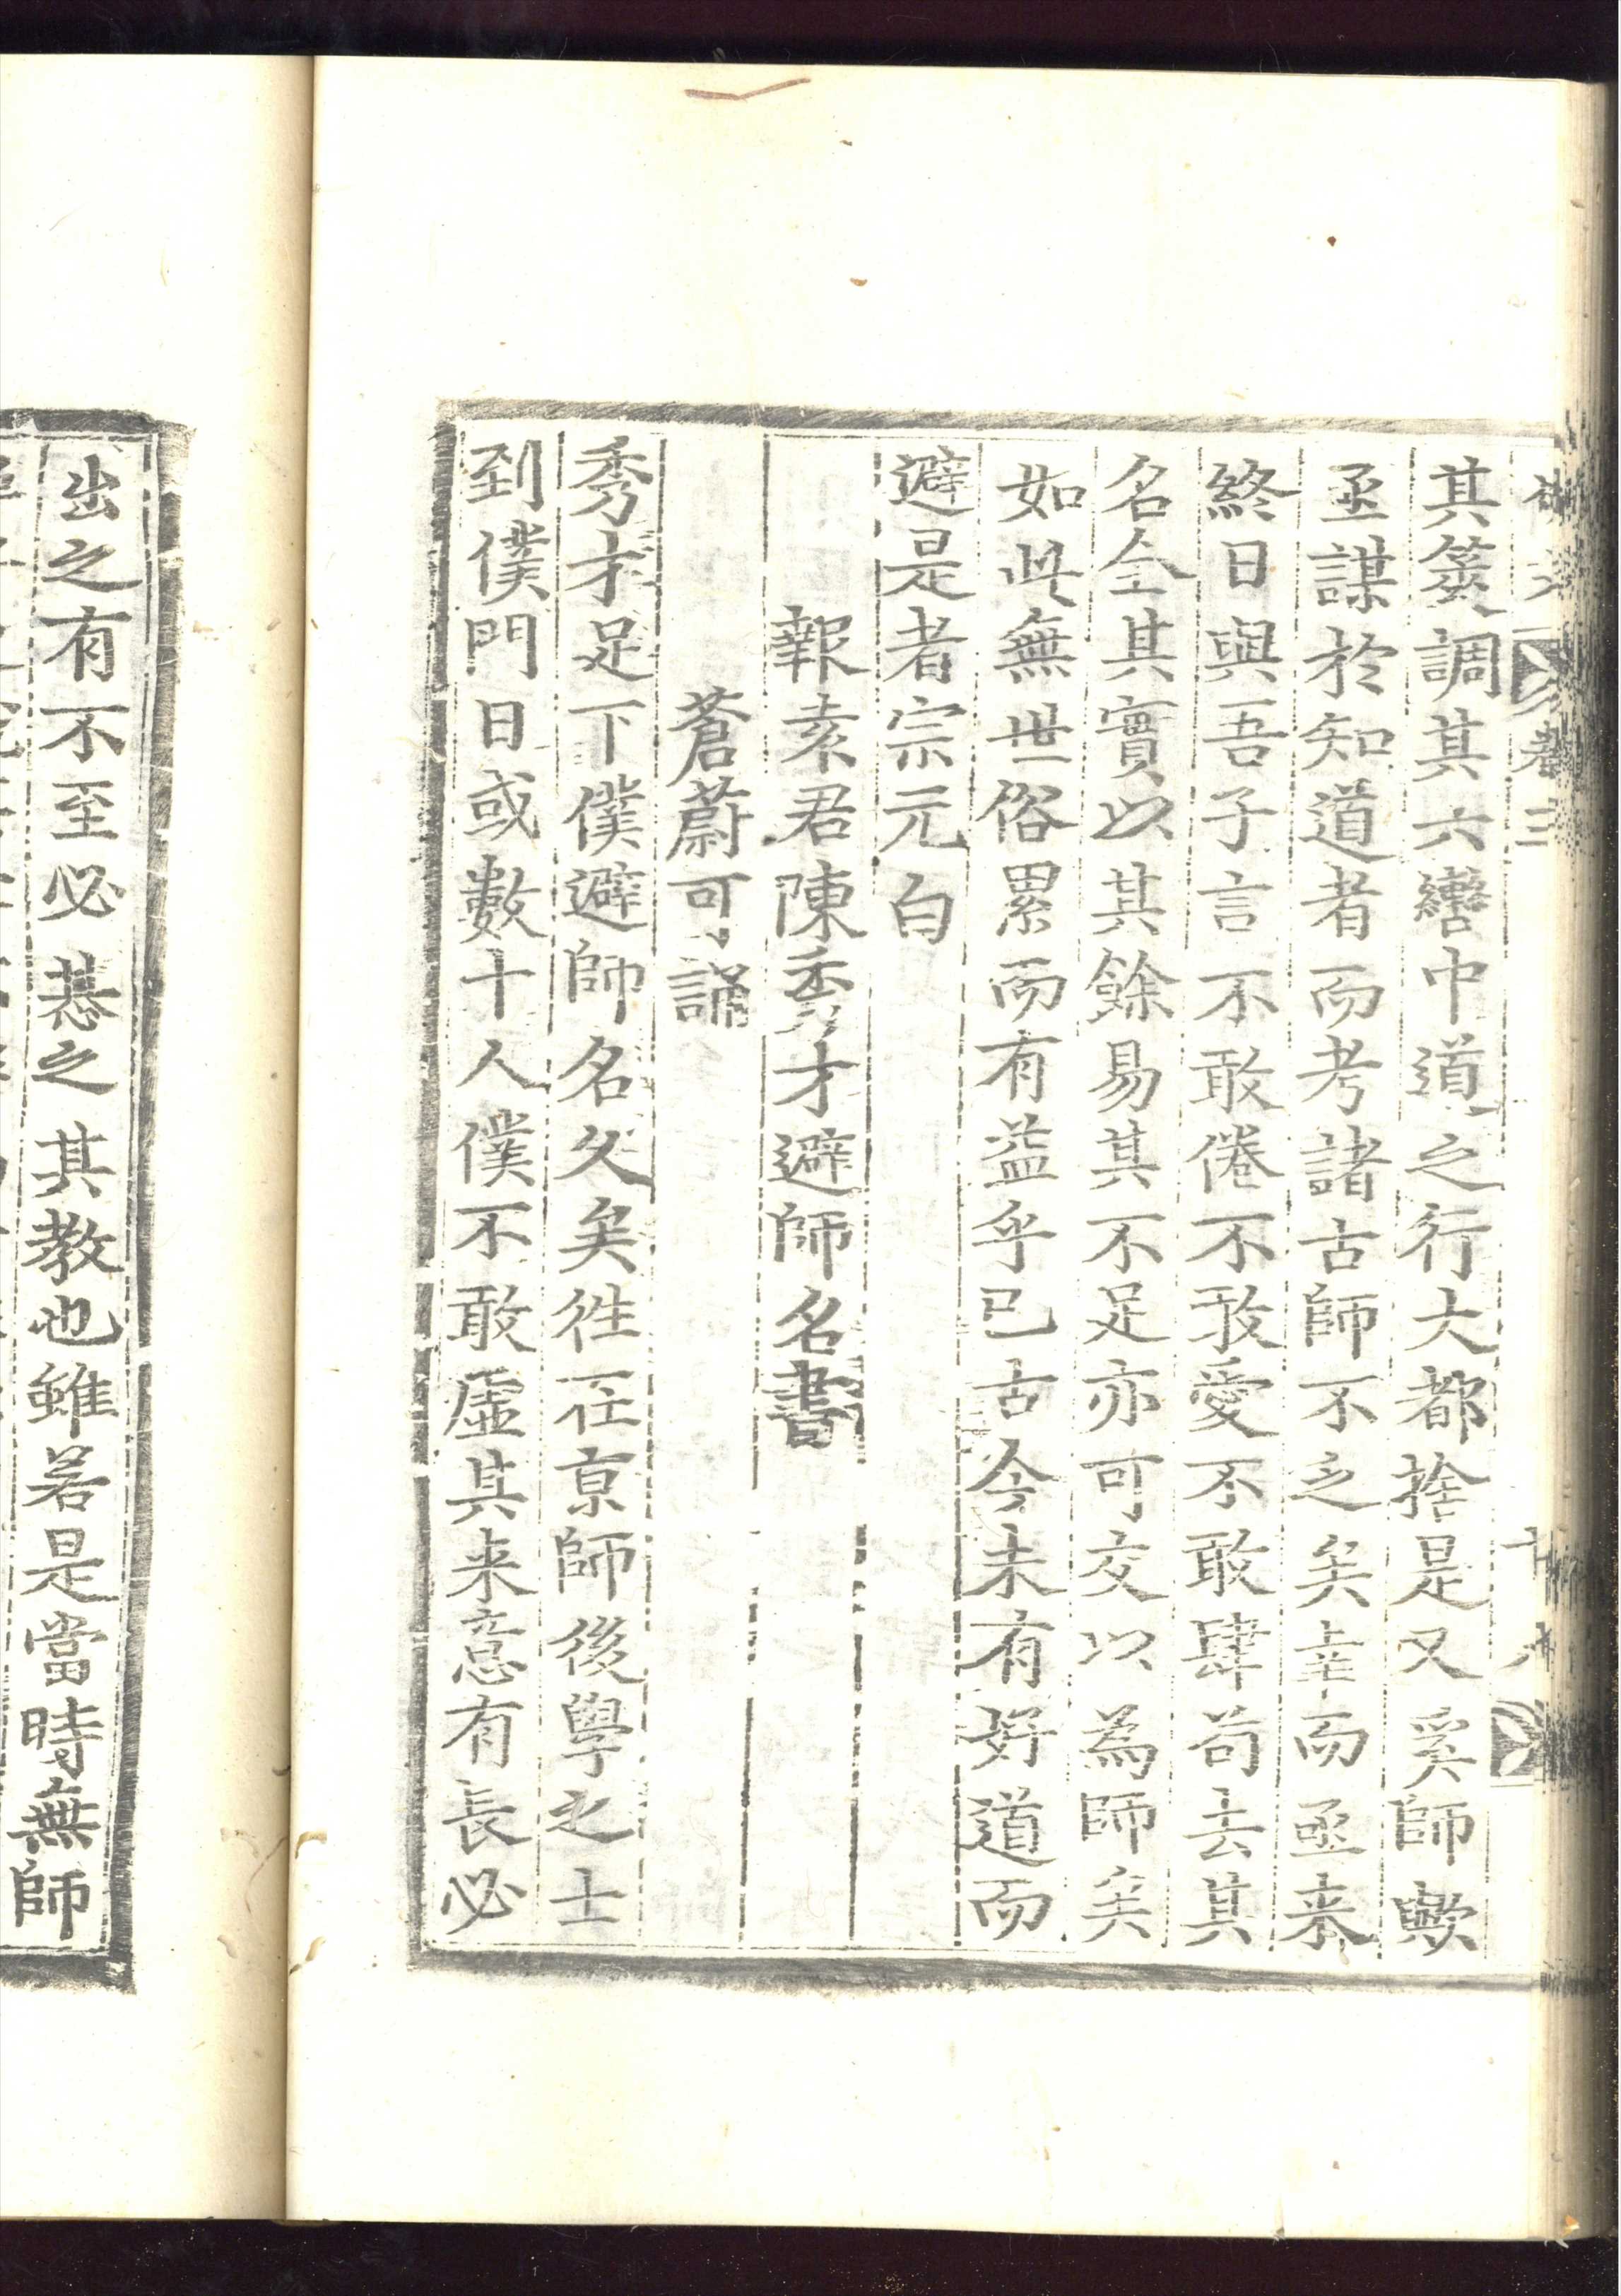 其筴調其六轡中道之行大都捨是又奚師歟
亟謀於知道者而考諸古師不乏矣幸而亟来
終日與吾子言不敢倦不敢愛不敢肆苟去其
名全其實以其餘易其不足亦可交以為師矣
如此無世俗累而有益乎已古今未有好道而
避是者宗元白
報袁君陳秀才避師名書
蒼蔚可誦
秀才足下僕避師名久矣徃在京師後學之士
到僕門日或數十人僕不敢虛其来意有長必
出之有不至必惎之其教也雖若是當時無師